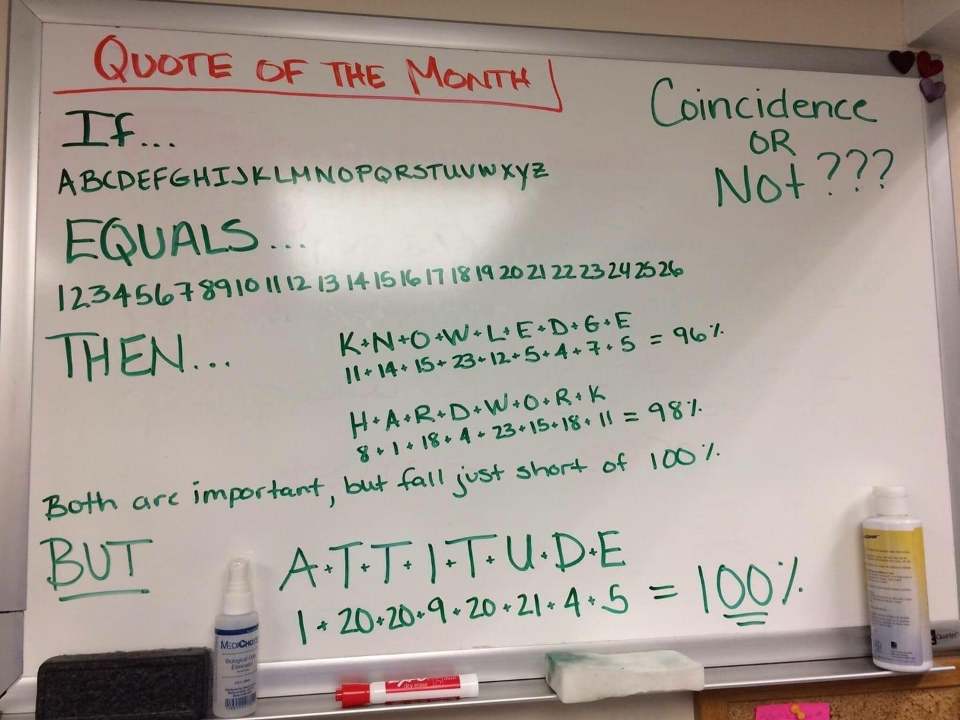 QUOTE OF THE MONTH
If...
ABCDEFGHIJKLMNOPQRSTUVWXYZ
EQUALS...
1 2 3 4 5 6 7 8 9 10 11 12 13 14 15 16 17 18 19 20 21 22 23 24 25 26
THEN...
K+N+O+W+L+E+D+G+E
11+14+15+23+12+5+4+7+5 = 96%
H+A+R+D+W+O+R+K
8+1+18+4+23+15+18+11 = 98%
Both are important, but fall just short of 100%
BUT
A+T+T+I+T+U+D+E
1+20+20+9+20+21+4+5 = 100%
Coincidence
OR
Not ???
MEDICHOICE